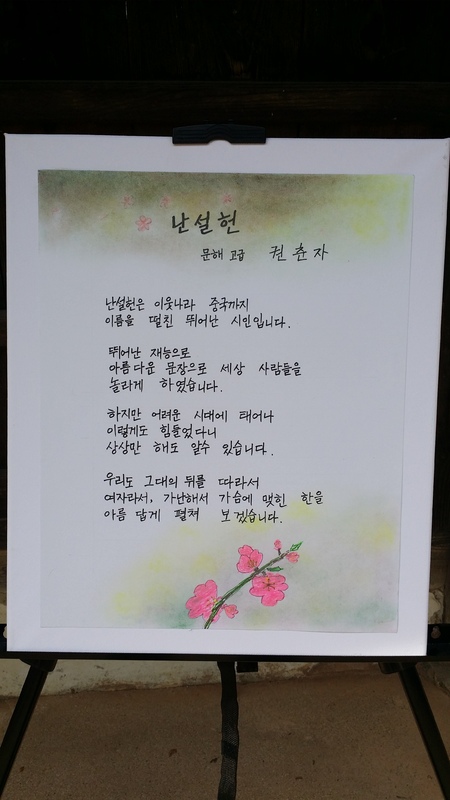 난설헌
문해 고급 권춘자
난설헌은 이웃나라 중국까지
이름을 떨친 뛰어난 시인입니다.
뛰어난 재능으로
아름다운 문장으로 세상 사람들을
놀라게 하였습니다.
하지만 어려운 시대에 태어나
이렇게도 힘들었다니
상상만 해도 알수 있습니다.
우리도 그대의 뒤를 따라서
여자라서, 가난해서 가슴에 맺힌 한을
아름 답게 펼쳐 보겠습니다.